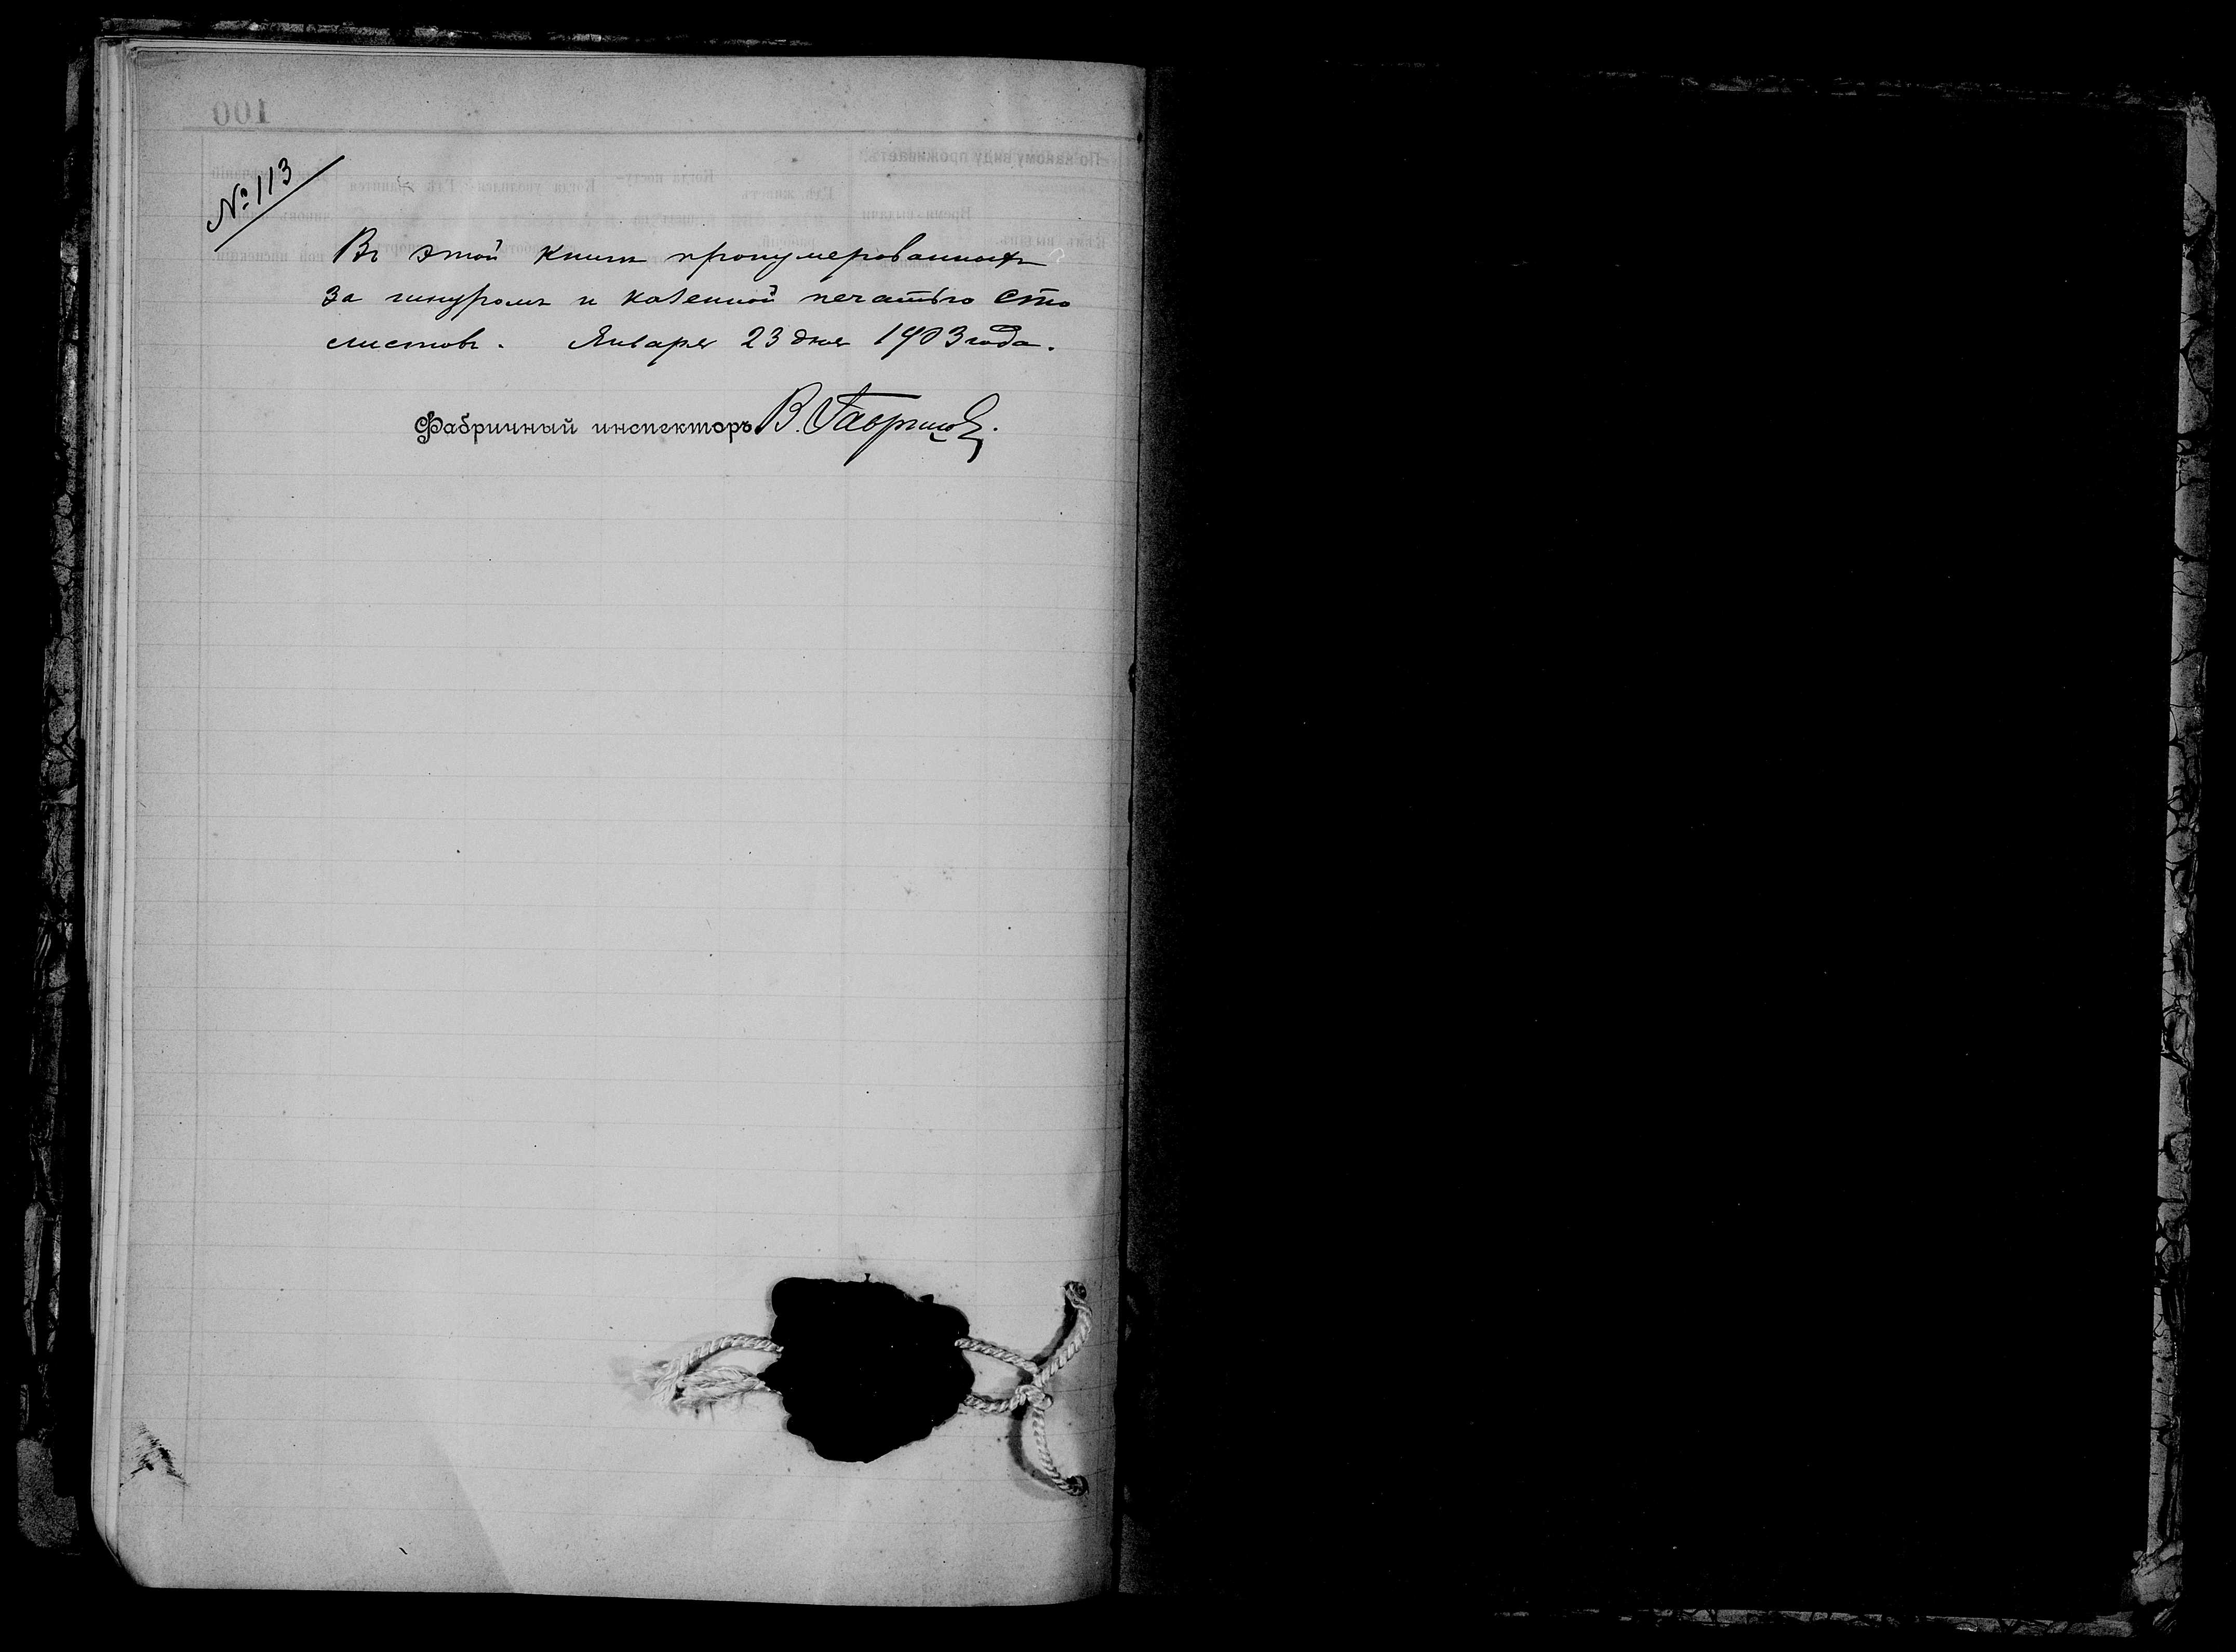 № 113
Въ этой книгѣ пронумерованныхъ
за шнуромъ и казенной печатью сто
листовъ. Января 23 дня 1903 года.
Фабричный инспекторъ В. Гаврилов
100
По какому виду проживаетъ.